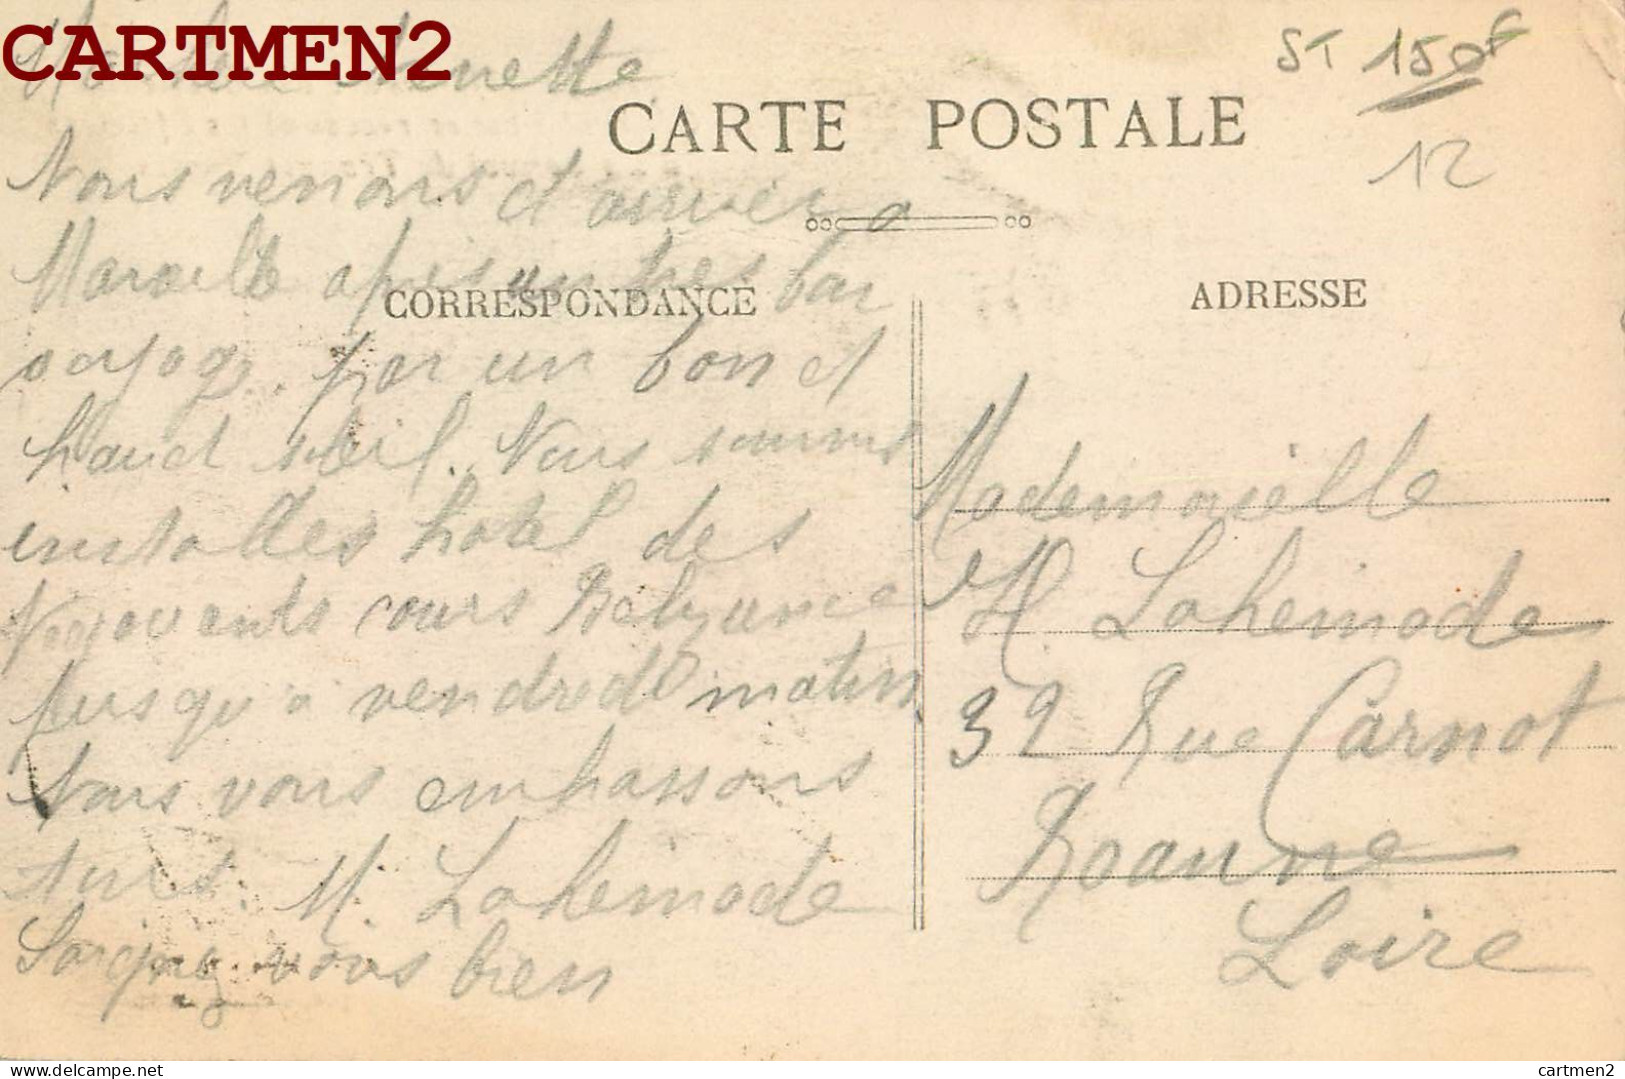 CARTMEN2
ST 150F
12
CARTE POSTALE
Nous venons d'arriver a
Marseille apres un tres bon
CORRESPONDANCE
ADRESSE
voyage. par un bon et
haud soleil. Nous sommes
installes hotel des
cours Belzunce
jusqu'a vendredi matin
Nous vous embrassons
tous. M. Lahemade
Soignez vous bien
Mademoiselle
M. Lahemade
32 Rue Carnot
Roanne
Loire
www.delcampe.net
cartmen2